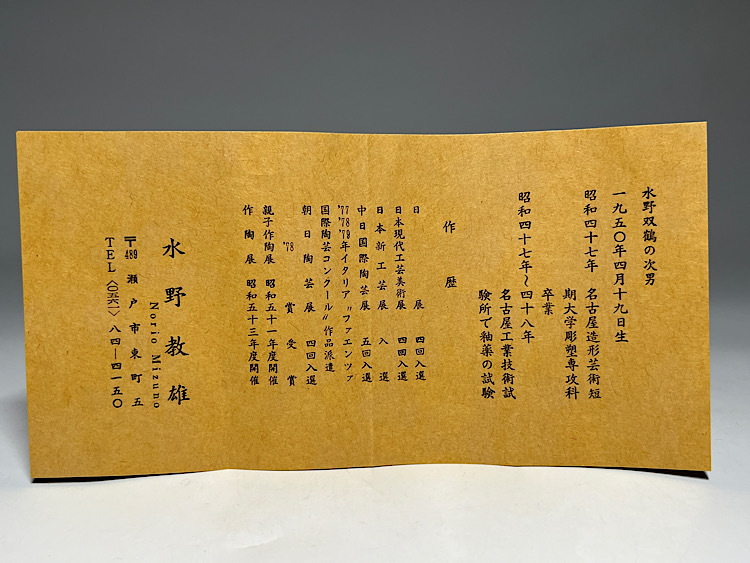 水野双鶴の次男
一九五〇年四月十九日生
昭和四十七年 名古屋造形芸術短
期大学彫塑専攻科
卒業
昭和四十七年〜四十八年
名古屋工業技術試
験所で釉薬の試験
作歴
日展 四回入選
日本現代工芸美術展 四回入選
日本新工芸展 入選
中日国際陶芸展 五回入選
'77 '78 '79年イタリア〃ファエンツァ
国際陶芸コンクール〃作品派遣
朝日陶芸展 四回入選
'78 賞受賞
親子作陶展 昭和五十一年度開催
作陶展 昭和五十三年度開催
水野教雄
Norio Mizuno
〒489 瀬戸市東町五
TEL〈〇五六一〉八四―四一五〇